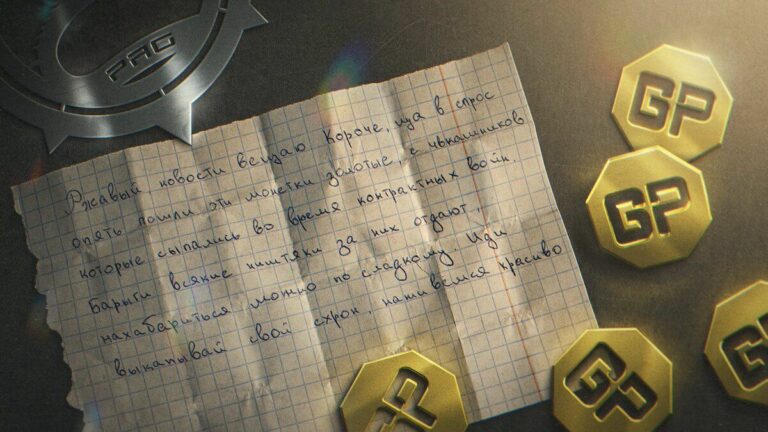 PRG
Ржавый новости вещаю. Короче, ща в спрос
опять пошли эти монетки золотые, с чвкашников
которые сыпались во время контрактных войн.
Барыги всякие ништяки за них отдают,
нахабариться можно по сладкому. Иди
выкапывай свой схрон, наживёмся красиво
GP
GP
GP
GP
GP